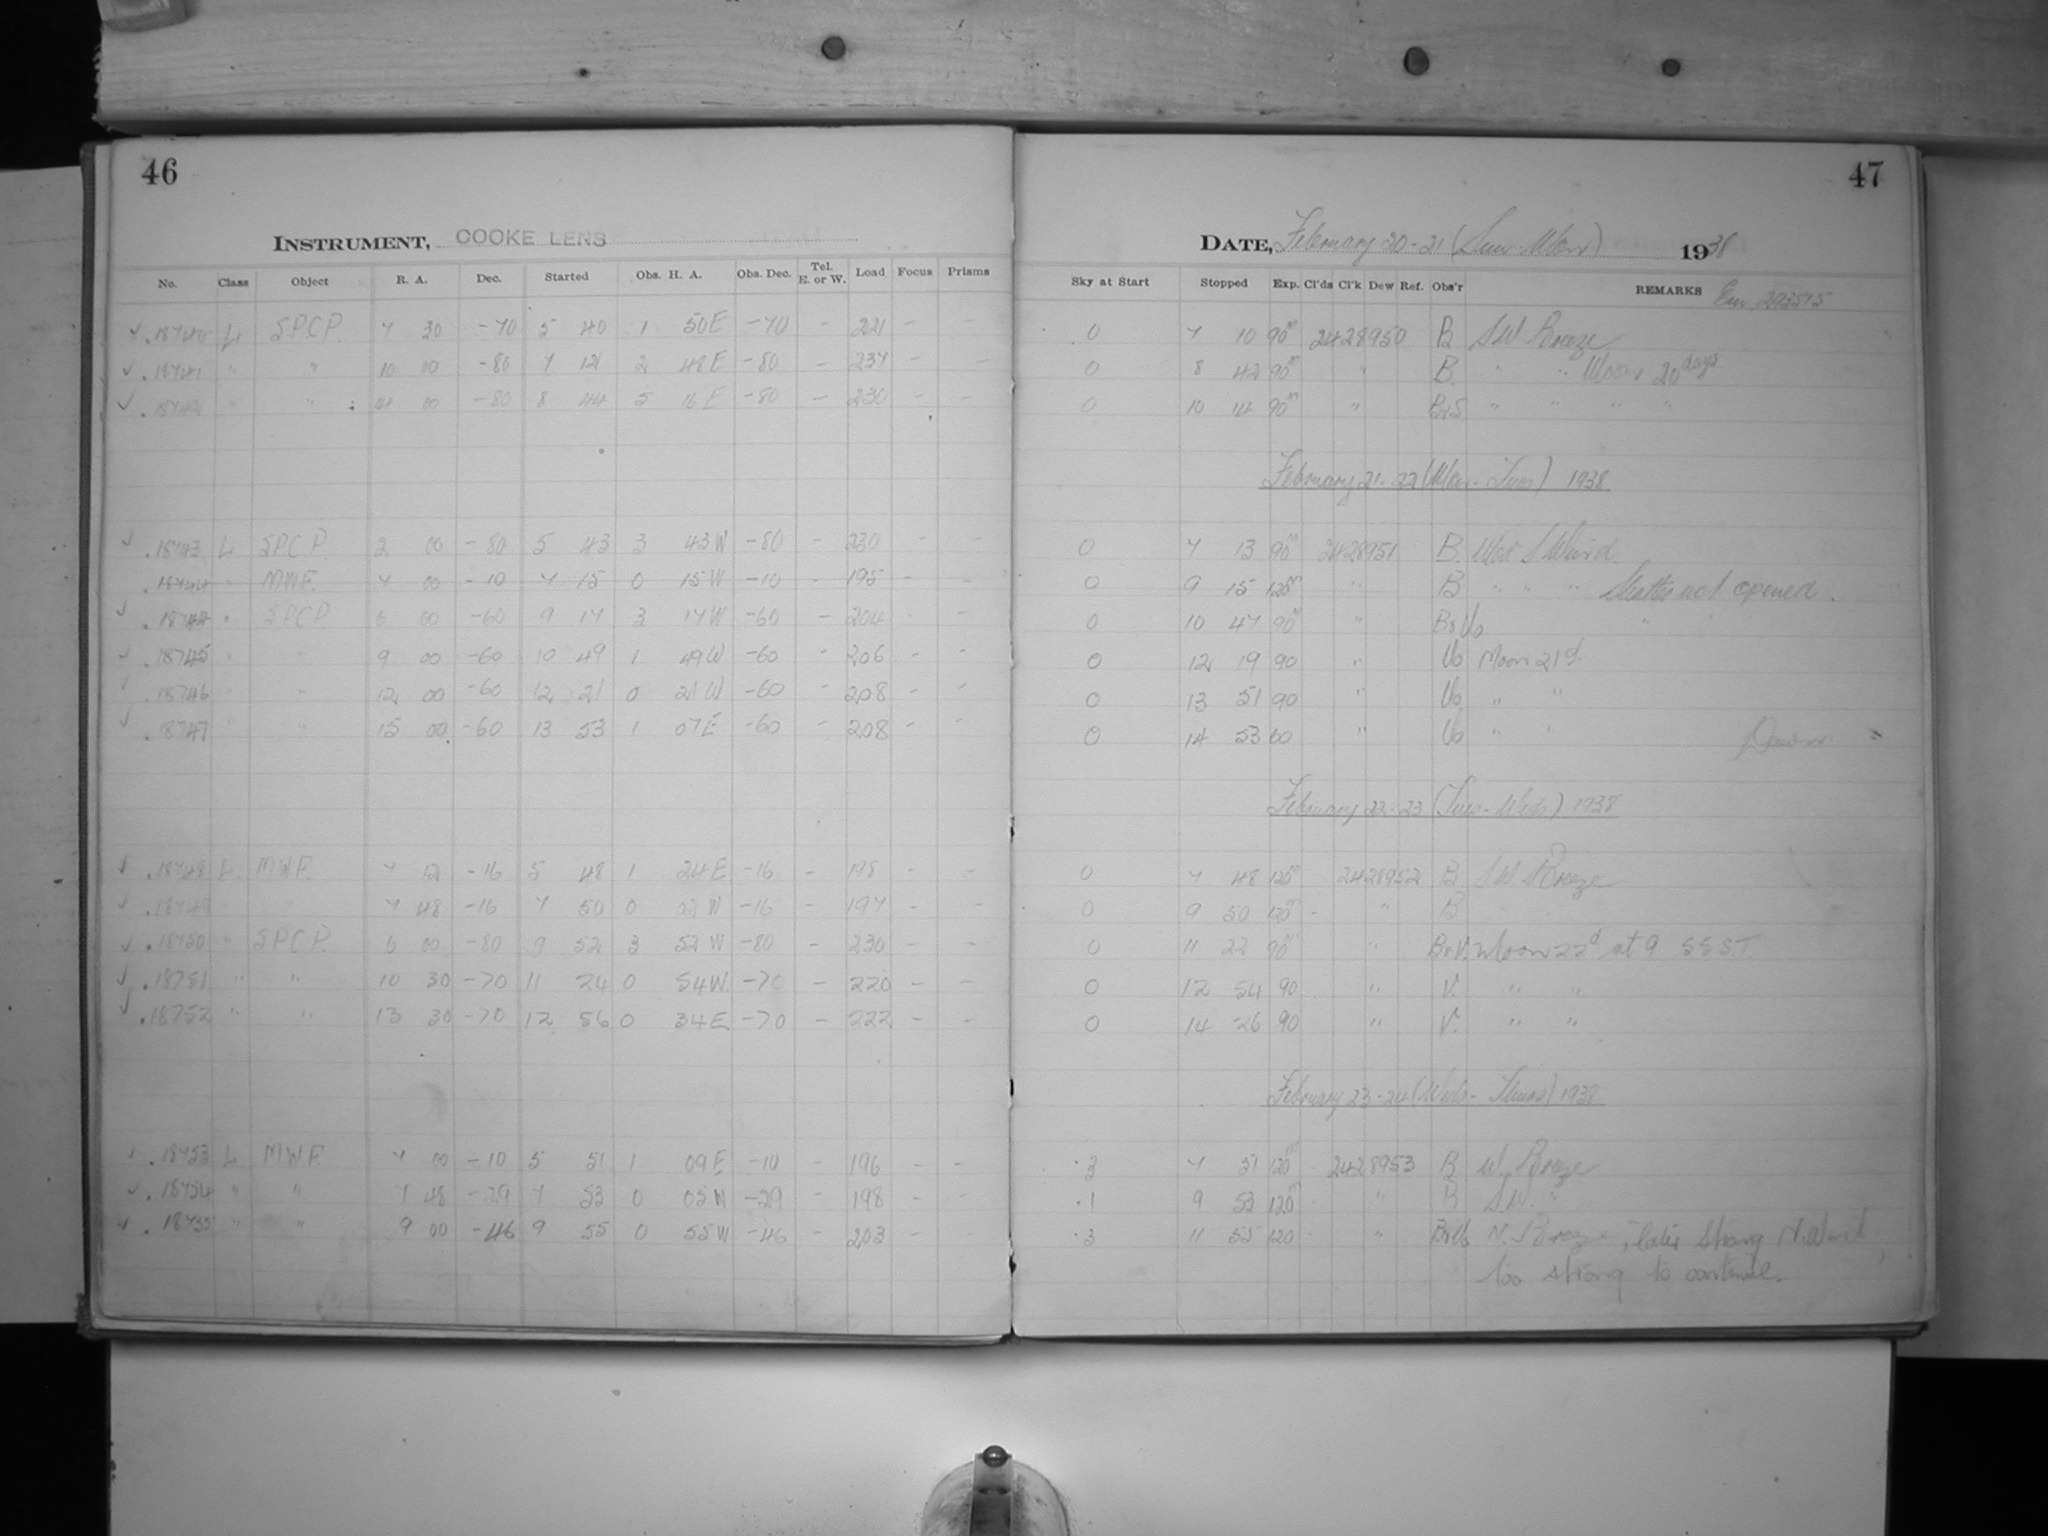 46
INSTRUMENT, COOKE LENS
No. Class Object R. A. Dec. Started Obs. H. A. Obs. Dec. Tel. E. or W. Load Focus Prisms
.18740 L S.P.C.P. 7 30 -70 5 40 1 50E -70 - 221 - -
.18741 " " 10 00 -80 7 12 2 48E -80 - 237 - -
" " 14 00 -80 8 44 5 16E -80 - 230 - -
.18743 L S.P.C.P. 2 00 -80 5 43 3 43W -80 - 230 - -
" M.W.F. 7 00 -10 7 15 0 15W -10 - 195 - -
.18744 " S.P.C.P. 6 00 -60 9 17 3 17W -60 - 204 - -
.18745 " " 9 00 -60 10 49 1 49W -60 - 206 - -
.18746 " " 12 00 -60 12 21 0 21W -60 - 208 - -
.18747 " " 15 00 -60 13 53 1 07E -60 - 208 - -
.18748 L M.W.F. 7 12 -16 5 48 1 24E -16 - 198 - -
.18749 7 48 -16 7 50 0 02W -16 - 197 - -
.18750 " S.P.C.P. 6 00 -80 9 52 3 52W -80 - 230 - -
.18751 " " 10 30 -70 11 24 0 54W -70 - 220 - -
.18752 " " 13 30 -70 12 56 0 34E -70 - 222 - -
.18753 L M.W.F. 7 00 -10 5 51 1 09E -10 - 196 - -
.18754 " " 7 48 -29 7 53 0 05W -29 - 198 - -
.18755 " " 9 00 -46 9 55 0 55W -46 - 203 - -
47
DATE, February 20-21 (Sun-Mon) 1938
Sky at Start Stopped Exp. Cl'ds Cl'k Dew Ref. Obs'r REMARKS
0 7 10 90m 2428950 B S.W. Breeze
0 8 42 90m " B. " " Moon 20 days
0 10 14 90m " " " " "
February 21-22 (Mon-Tues) 1938
0 7 13 90m 2428951 B. S Wind.
0 9 15 120m " B " " " Shutter not opened.
0 10 47 90m " "
0 12 19 90 " Moon 21d.
0 13 51 90 " " "
0 14 53 60 " " " Dawn
February 22-23 (Tues-Weds) 1938
0 7 48 120m 2428952 B SW Breeze
0 9 50 120m " B
0 11 22 90m " B&V. Moon 22d at 9 SSST
0 12 54 90 " V. " "
0 14 26 90 " V. " "
February 23-24 (Weds-Thurs) 1938
.3 7 51 120m 2428953 B W. Breeze
.1 9 53 120m " B S.W. "
.3 11 55 120 " N. Breeze, later strong N. Wind
too strong to continue.